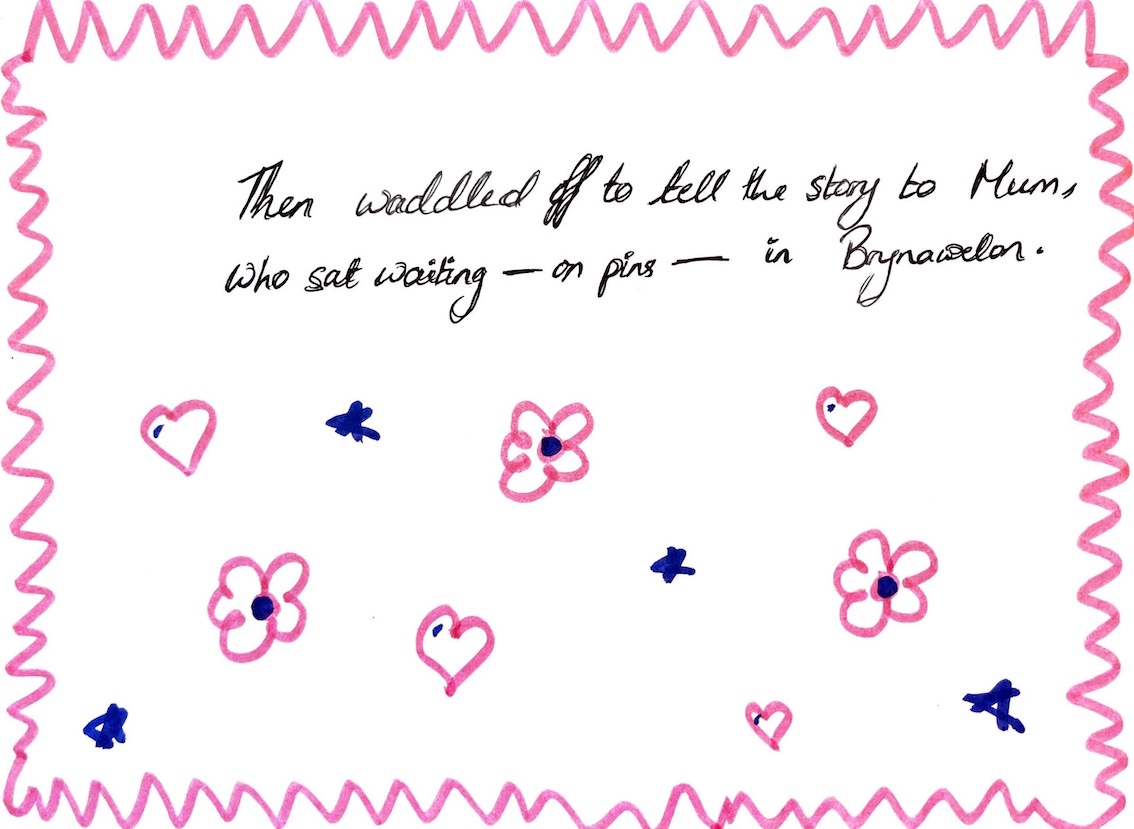 Then waddled off to tell the story to Mum,
who sat waiting — on pins — in Brynawelon.